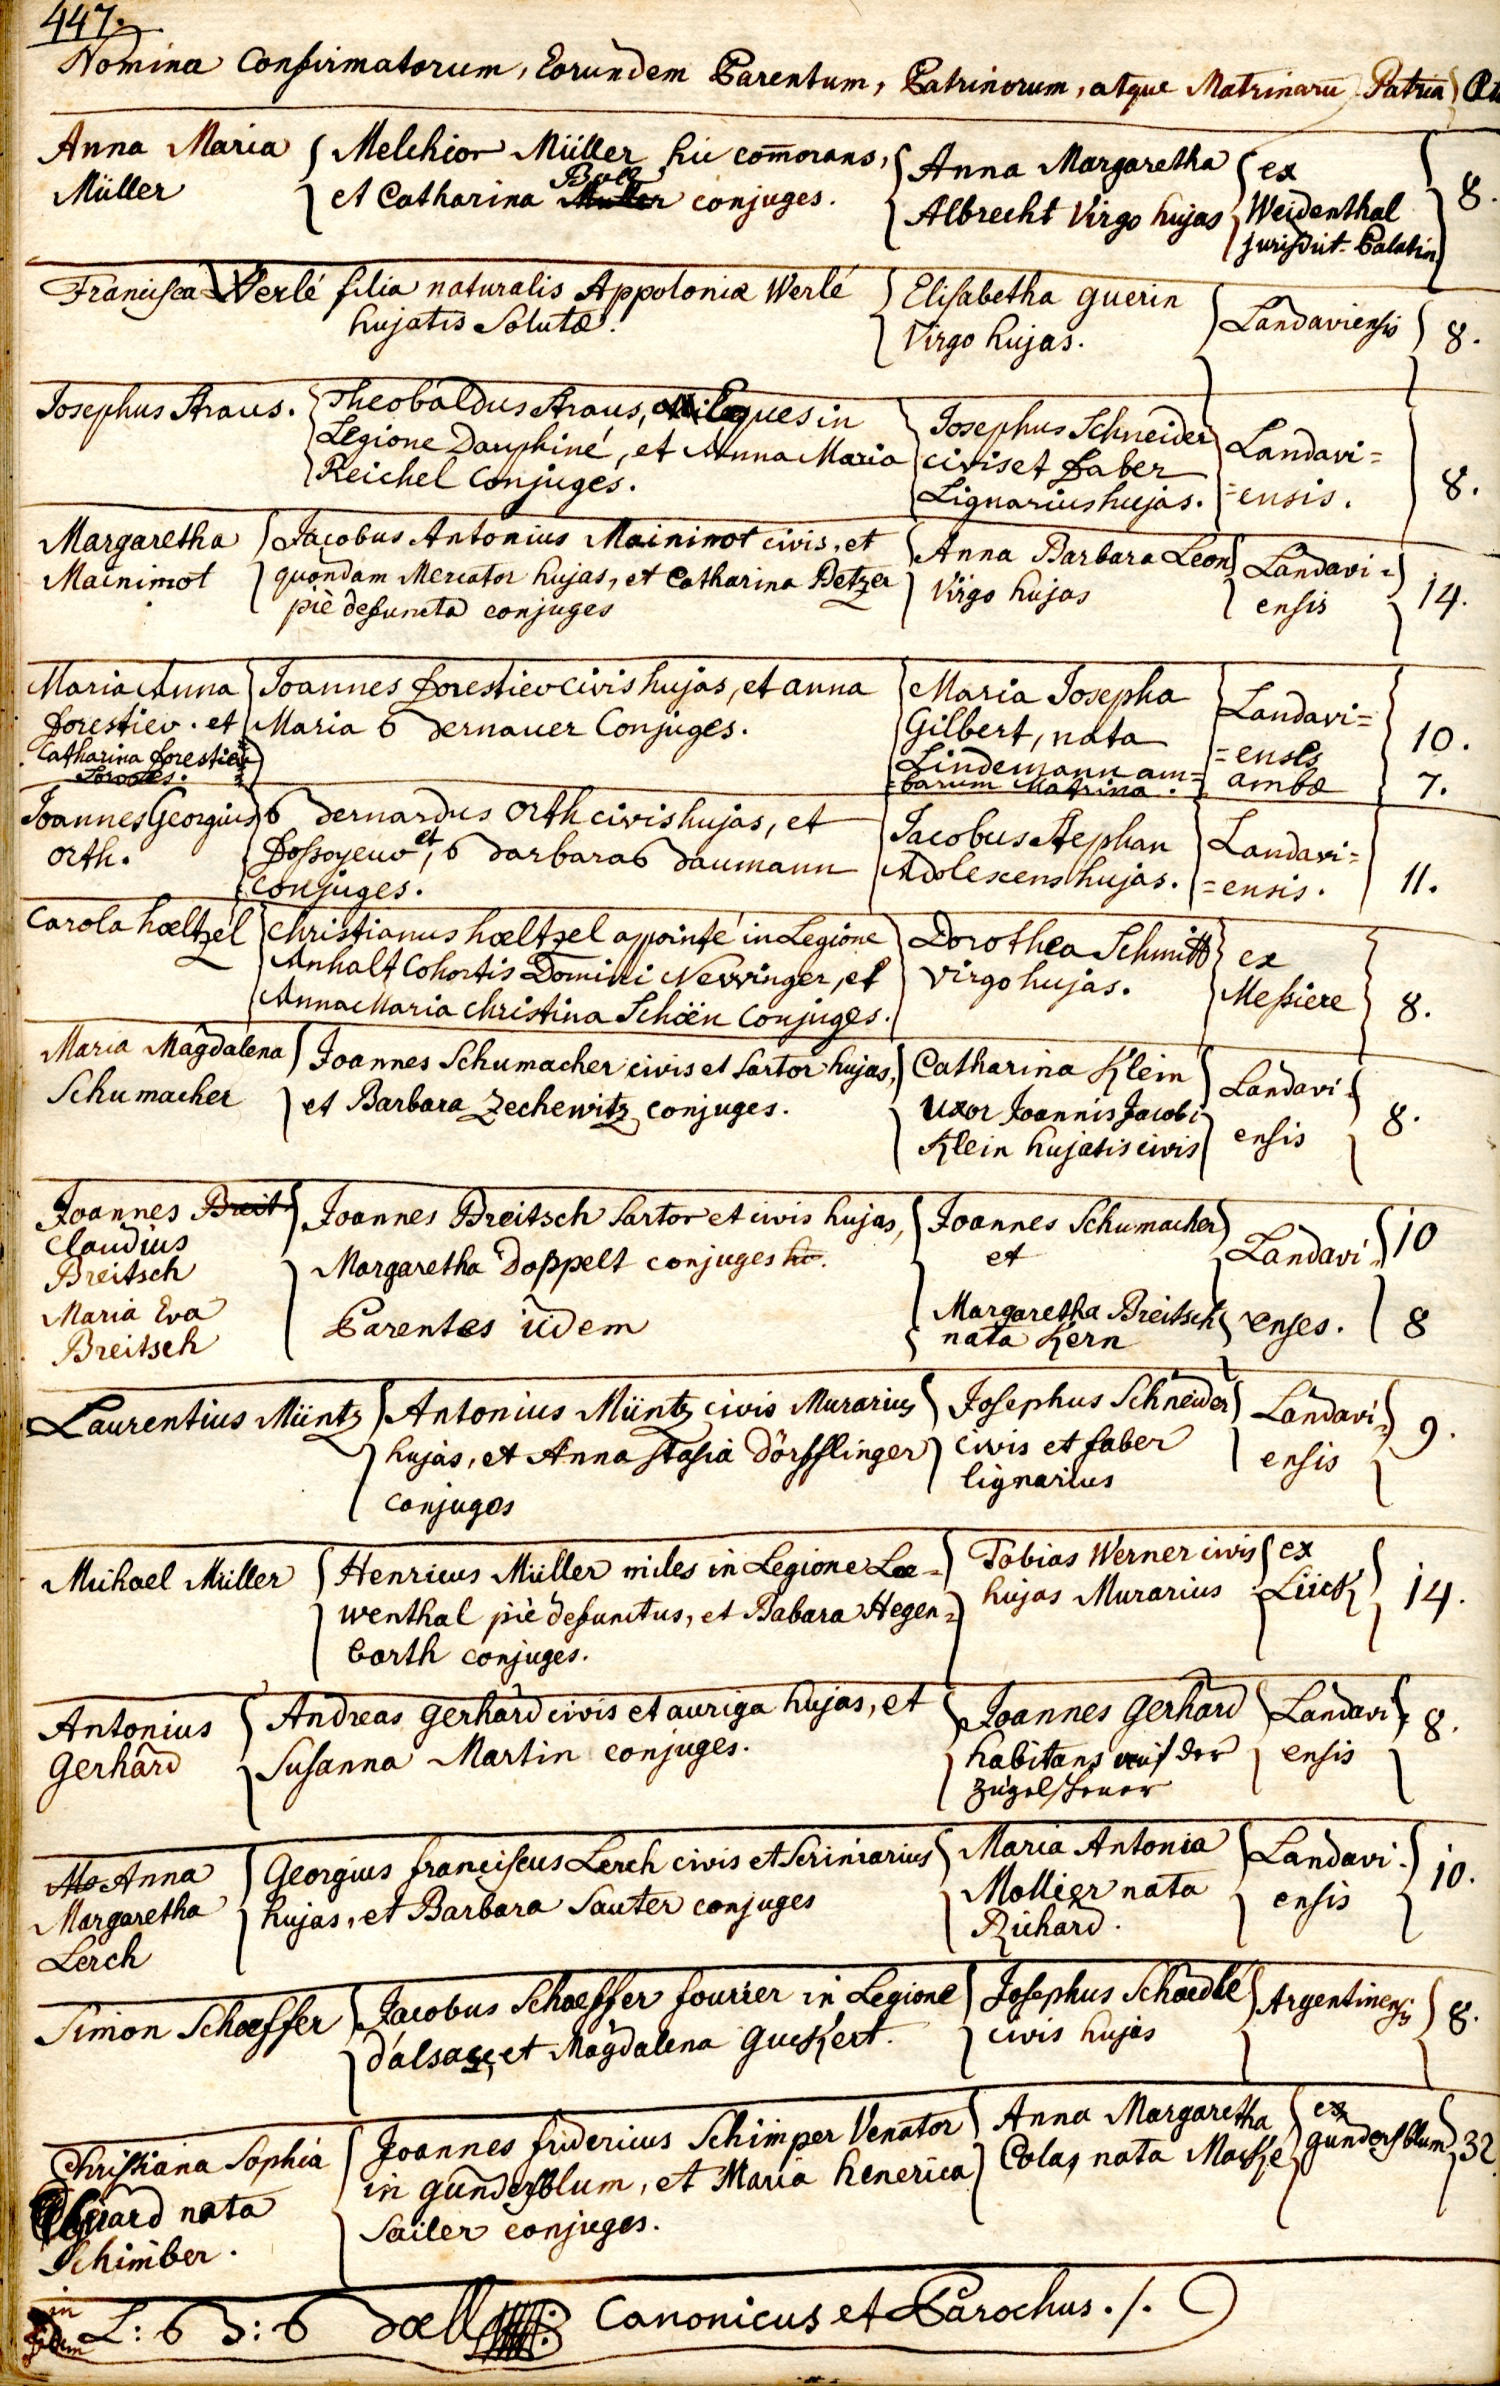 447.
Nomina Confirmatorum, Eorundem Parentum, Patrinorum, atque Matrinarū Patria
Anna Maria
Müller
Melchior Müller hic com̄orans,
et Catharina Boll Müller conjuges.
Anna Margaretha
Albrecht Virgo hujas
ex
Weidenthal
jurisdict. Palatin
8.
Francisca Werlé filia naturalis Appolonia Werlé
hujatis Solutæ.
Elisabetha guerin
Virgo hujas.
Landaviensis
8.
Josephus Straus.
Theobaldus Straus, Eques in
Legione Dauphiné, et Anna Maria
Reichel Conjuges.
Josephus Schneider
civis et faber
Lignarius hujas.
Landavi=
=ensis.
8.
Margaretha
Mainimot
Jacobus Antonius Mainimot civis, et
quondam Mercator hujas, et Catharina Betzer
piè defuncta conjuges
Anna Barbara Leon
Virgo hujas
Landavi=
ensis
14.
Maria Anna
forestier. et
Catharina forestier
Sorores.
Joannes forestier civis hujas, et anna
Maria Bernauer Conjuges.
Maria Josepha
Gilbert, nata
Lindemann am=
=barum Matrina.
Landavi=
=enses
ambæ
10.
7.
Joannes Georgius
Orth.
Bernardus Orth civis hujas, et
fossoyeur, et Barbara Baumann
conjuges.
Jacobus Stephan
Adolescens hujas.
Landavi=
=ensis.
11.
Carola hœltzel
Christianus hœltzel appointé in Legione
Anhalt Cohortis Domini Nevvinger, et
Anna Maria Christina Schöën Conjuges.
Dorothea Schmitt
Virgo hujas.
ex
Messiere
8.
Maria Magdalena
Schumacher
Joannes Schumacher civis et Sartor hujas,
et Barbara Zechewitz conjuges.
Catharina Klein
Uxor Joannis Jacobi
Klein hujatis civis
Landavi=
ensis
8.
Joannes Breit
Claudius
Breitsch
Maria Eva
Breitsch
Joannes Breitsch Sartor et civis hujas,
Margaretha Doppelt conjuges hu.
Parentes iidem
Joannes Schumacher
et
Margaretha Breitsch
nata Kern
Landavi=
enses.
10
8
Laurentius Müntz
Antonius Müntz civis Murarius
hujas, et Anna Stasia Dörfflinger
Conjuges
Josephus Schneider
civis et faber
lignarius
Landavi=
ensis
9.
Michael Müller
Henricus Müller miles in Legione Lœ=
wenthal piè defunctus, et Babara Hegen=
barth conjuges.
Tobias Werner civis
hujas Murarius
ex
Lück
14.
Antonius
Gerhard
Andreas Gerhard civis et auriga hujas, et
Susanna Martin conjuges.
Joannes Gerhard
habitans auf der
Zügelscheuer
Landavi=
ensis
8.
Ma Anna
Margaretha
Lerch
Georgius franciscus Lerch civis et Scriniarius
hujas, et Barbara Sauter conjuges
Maria Antonia
Mollier nata
Richard.
Landavi=
ensis
10.
Simon Schæffer
Jacobus Schæffer fourier in Legione
d'alsace, et Magdalena Guckert.
Josephus Schœdle
civis hujas
Argentinensis
8.
Christiana Sophia
nata
Schimber.
Joannes fridericus Schimper Venator
in gundersblum, et Maria henerica
Sailer conjuges.
Anna Margaretha
Colas nata Macke
ex
gundersblum
32
in
fidem
L: B: Bœll Canonicus et Parochus./.